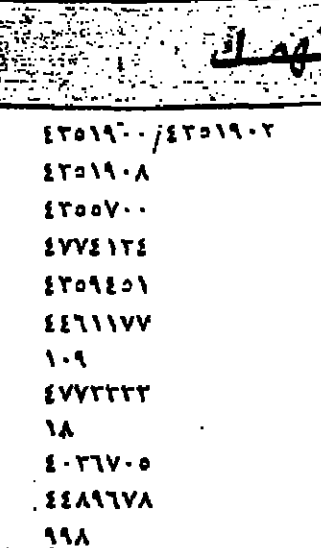 تهمك
٤٣٥١٩٠٠/٤٣٥١٩٠٢
٤٣٥١٩٠٨
٤٣٥٥٧٠٠
٤٧٧٤١٢٤
٤٣٥٩٤٥١
٤٤٦١١٧٧
١٠٩
٤٧٧٣٣٣٣
١٨
٤٠٣٦٧٠٥
٤٤٨٩٦٧٨
٩٩٨